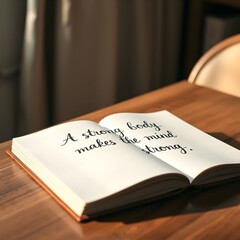 A strong body
makes the mind
strong.